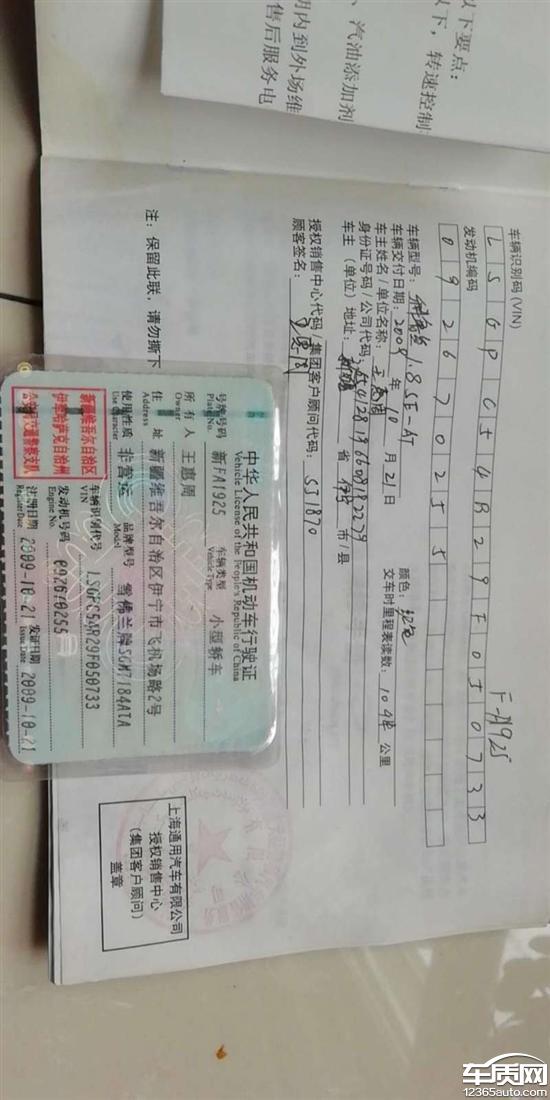 以下要点：
以下，转速控制
、汽油添加剂
期内到外场维
售后服务电
F-A1925
车辆识别码 (VIN)
L S G P C 5 4 B 2 9 F 0 5 0 7 3 3
发动机编码
0 9 2 6 7 0 2 5 5
车辆型号： 1.8SE-AT
颜色：红色
车辆交付日期：2009年10月21日
交车时里程表读数：10 公里
车主姓名/单位名称：王惠周
身份证号码/公司代码：
车主（单位）地址：新疆省伊宁市/县
授权销售中心代码/集团客户顾问代码：S31870
顾客签名：
注：保留此联，请勿撕下
上海通用汽车有限公司
授权销售中心
（集团客户顾问）
盖章
中华人民共和国机动车行驶证
Vehicle License of the People's Republic of China
号牌号码 新FA1925 车辆类型 小型轿车
Plate No. Vehicle Type
所有人 王惠周
Owner
住址 新疆维吾尔自治区伊宁市飞机场路2号
Address
使用性质 非营运 品牌型号 雪佛兰牌SGM7184ATA
Use Character Model
新疆维吾尔自治区
伊犁哈萨克自治州
公安局交通警察支队
车辆识别代号 LSGPC54R29F050733
VIN
发动机号码 092670255
Engine No.
注册日期 2009-10-21 发证日期 2009-10-21
Register Date Issue Date
车质网
12365auto.com